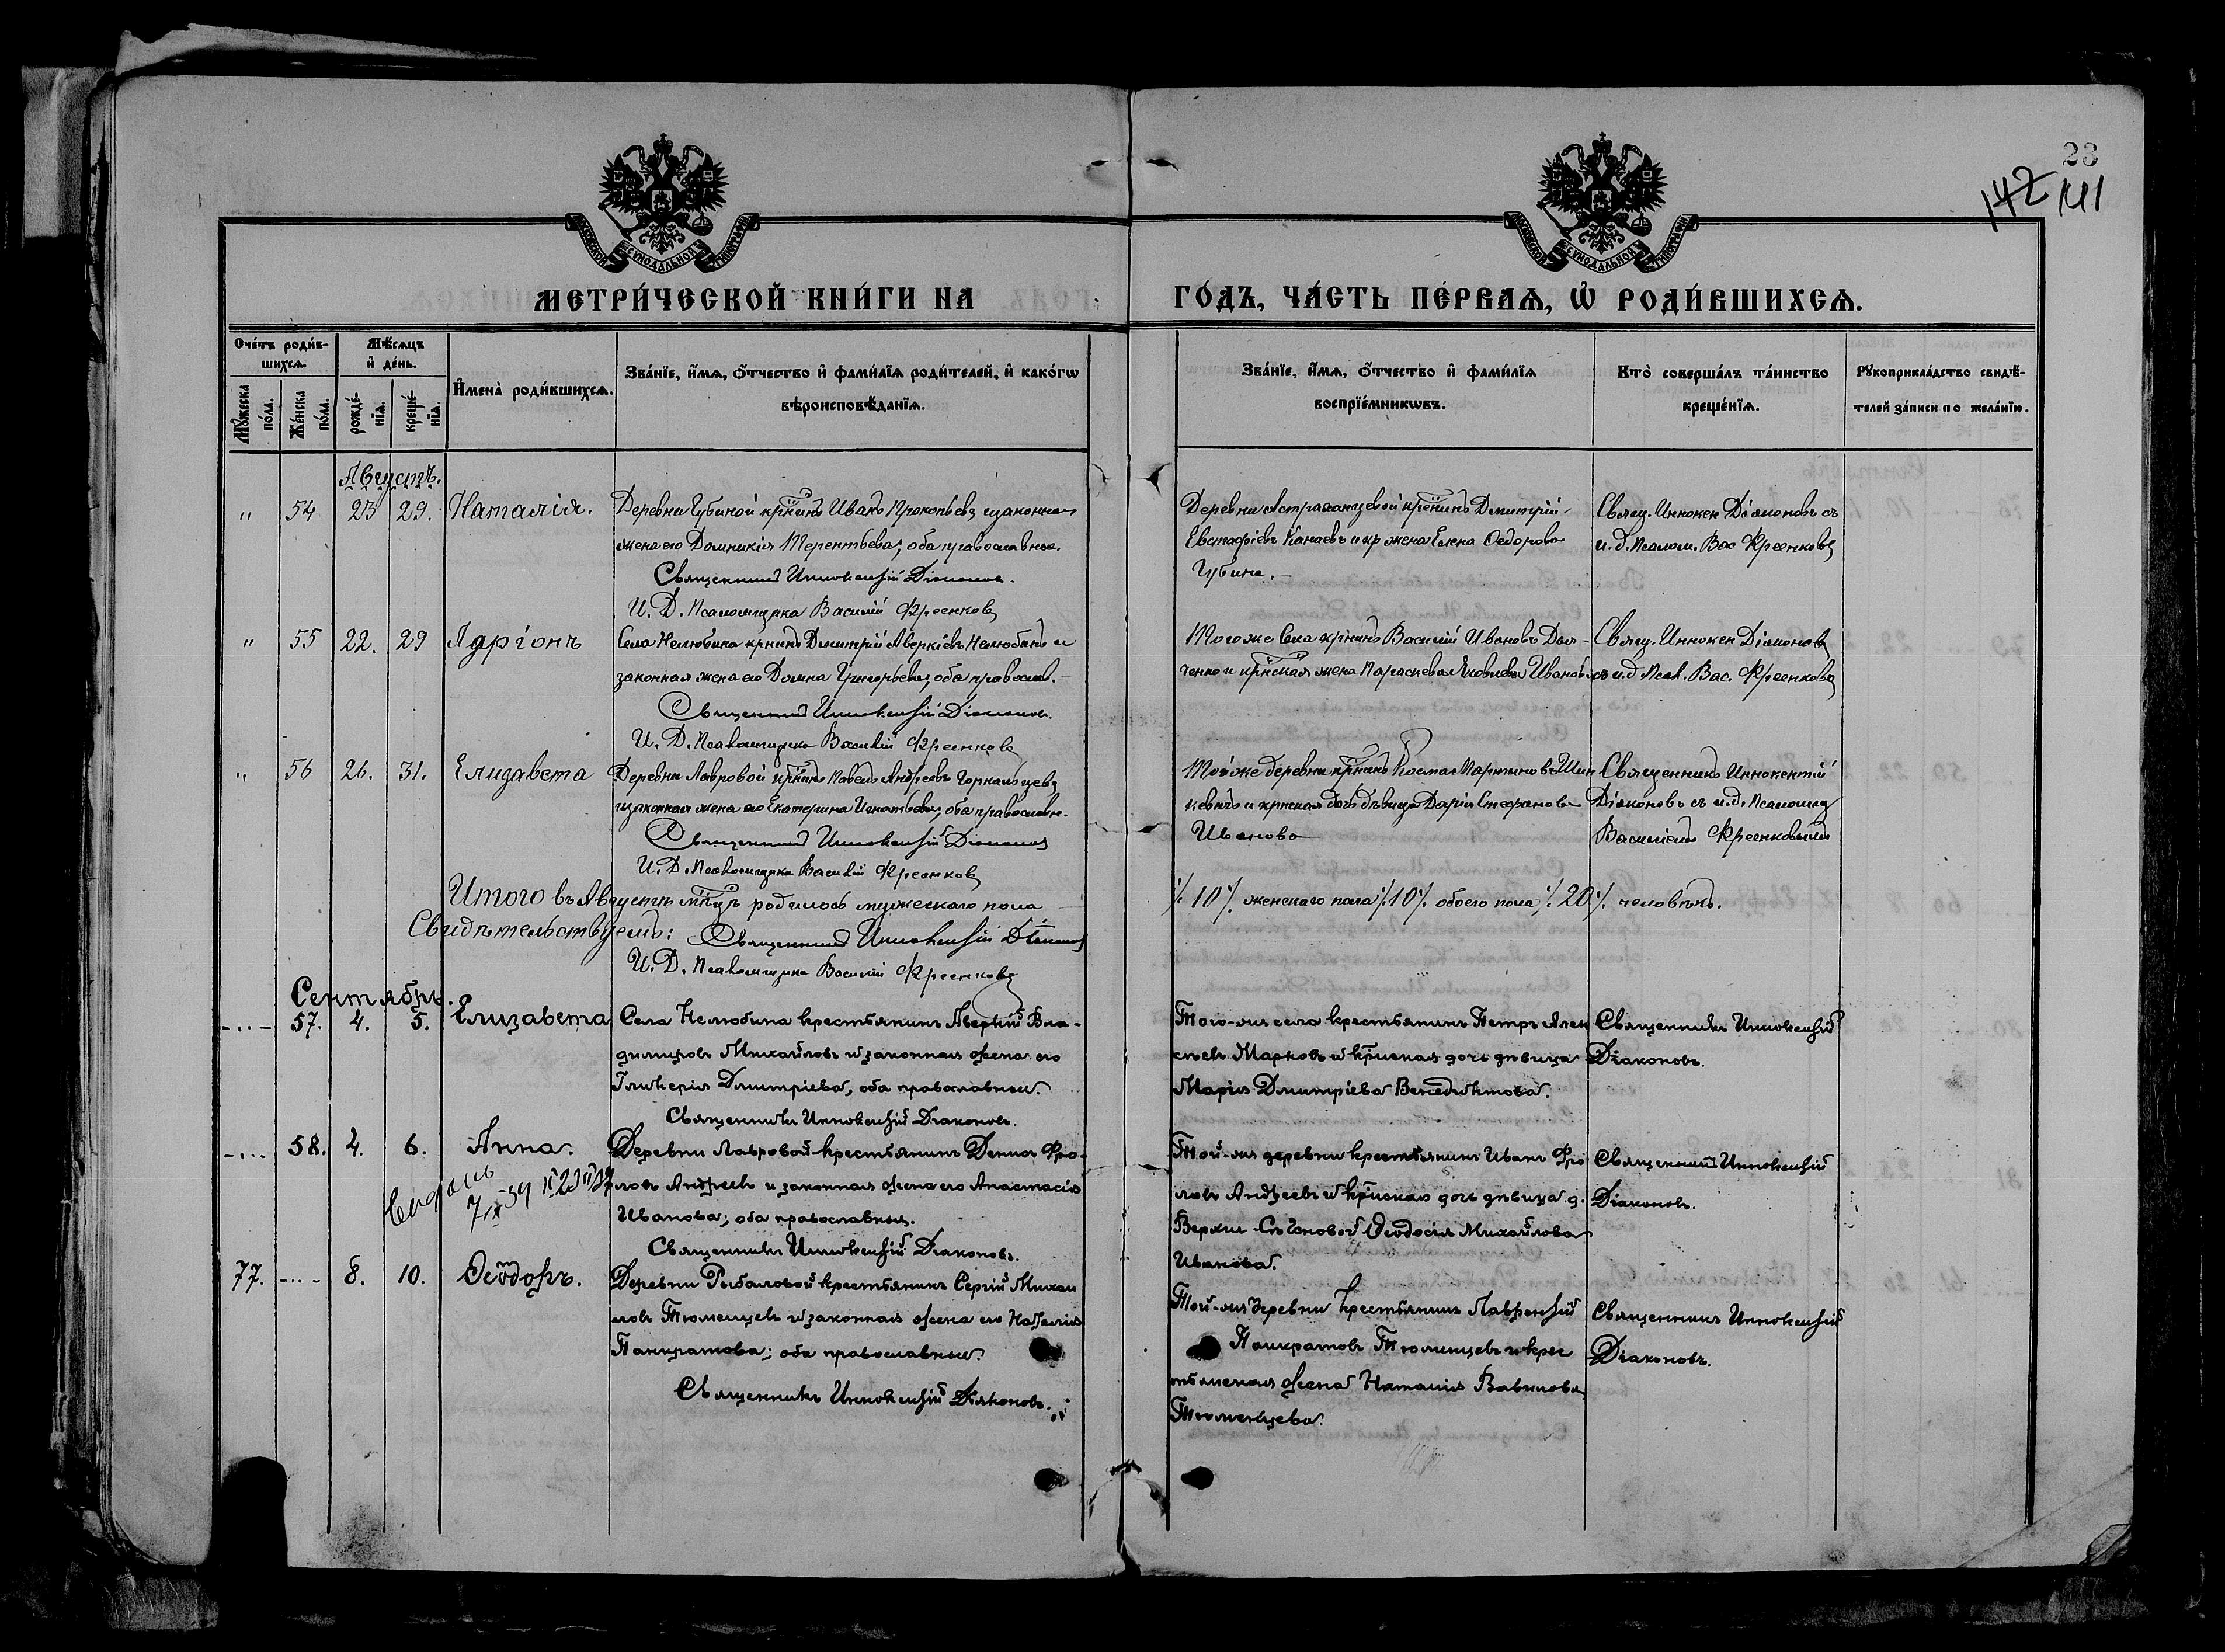 23
142 141
МОСКОВСКОЙ СѴНОДАЛЬНОЙ ТИПОГРАФІИ
МОСКОВСКОЙ СѴНОДАЛЬНОЙ ТИПОГРАФІИ
МЕТРИ́ЧЕСКОЙ КНИ́ГИ НА ГО́ДЪ, ЧА́СТЬ ПЕ́РВАѦ, Ѡ҆ РОДИ́ВШИХСѦ.
Сче́тъ роди́в-
шихсѧ.
Мꙋ́жеска по́ла.
Же́нска по́ла.
Мѣ́сѧцъ
и҆ де́нь.
рожде́-
нїѧ.
креще́-
нїѧ.
И҆мена̀ роди́вшихсѧ.
Зва́нїе, и҆́мѧ, ѻ҆́тчество и҆ фами́лїѧ роди́телей, и҆ како́гѡ
вѣроисповѣ́данїѧ.
Зва́нїе, и҆́мѧ, ѻ҆́тчество и҆ фами́лїѧ
воспрїе́мникѡвъ.
Кто̀ соверша́лъ та́инство
креще́нїѧ.
Рꙋкоприкла́дство свидѣ́-
телей за́писи по жела́нїю.
Августъ.
" 54 23 29. Наталія.
Деревни Губиной крнинъ Иванъ Прокопьевъ и законная
жена его Домникія Терентьева, оба православные.
Священникъ Иннокентій Діаконовъ.
И. Д. Псаломщика Василій
Деревни Астраханцевой крнинъ Димитрій
Евстафіевъ Канаевъ и кр жена Елена Ѳедорова
Губина.
Свящ. Иннокен Діаконовъ съ
и. д. Псалом. Вас
" 55 22. 29 Ларіонъ
Села Нелюбина крнинъ Димитрій Аверкіевъ Нелюбинъ и
законная жена его Домна Григорьева, оба правосл.
Священникъ Иннокентій Діаконовъ.
И. Д. Псаломщика Василій
Того же Села крнинъ Василій Ивановъ Дья-
ченко и крнская жена Параскева Яковлева Иванов.
Свящ. Иннокен Діаконовъ
съ и.д Псал. Вас.
" 56 26. 31. Елизавета
Деревни Лавровой крнинъ Павелъ Андреевъ
и законная жена его Екатерина Игнатьева, оба православн.
Священникъ Иннокентій Діаконовъ
И. Д. Псаломщика Василій
Той же деревни крнинъ Косма Мартиновъ Шин
кевичъ и крнская дочь дѣвица Дарія Стефанова
Иванова
Священникъ Иннокентій
Діаконовъ съ и. д. Псаломщ
Василіемъ
Итого въ Августѣ мцѣ родилось мужескаго пола ·/. 10 ·/. женскаго пола ·/. 10 ·/. обоего пола ·/. 20 ·/. человѣкъ.
Свидѣтельствуемъ: Священникъ Иннокентій Діаконовъ
И. Д. Псаломщика Василій
Сентябрь.
-..- 57. 4. 5. Елизавета
Села Нелюбина крестьянинъ Аверкій Вла-
димировъ Михайловъ и законная жена его
Гликерія Димитріева, оба православные.
Священникъ Иннокентій Діаконовъ.
Того-же села крестьянинъ Петръ Алек
сѣевъ Марковъ и крнская дочь дѣвица
Марія Димитріева Венедиктова.
Священникъ Иннокентій
Діаконовъ.
-... 58. 4. 6. Анна.
Деревни Лавровой крестьянинъ Фро-
ловъ Андреевъ и законная жена его Анастасія
Иванова; оба православные.
Священникъ Иннокентій Діаконовъ.
Той-же деревни крестьянинъ Иванъ Фро
ловъ Андреевъ и крнская дочь дѣвица д.
Верхне-Сѣченовой Ѳеодосія Михайлова
Иванова.
Священникъ Иннокентій
Діаконовъ.
77. -..- 8. 10. Ѳеодоръ.
Деревни Рыбаловой крестьянинъ Сергій Михаи
ловъ Тюменцевъ и законная жена его Наталія
Панкратова; оба православные.
Священникъ Иннокентій Діаконовъ.
Той-же деревни крестьянинъ Лаврентій
Панкратовъ Тюменцевъ и крес
тьянская жена Наталія Вавилова
Тюменцева.
Священникъ Иннокентій
Діаконовъ.